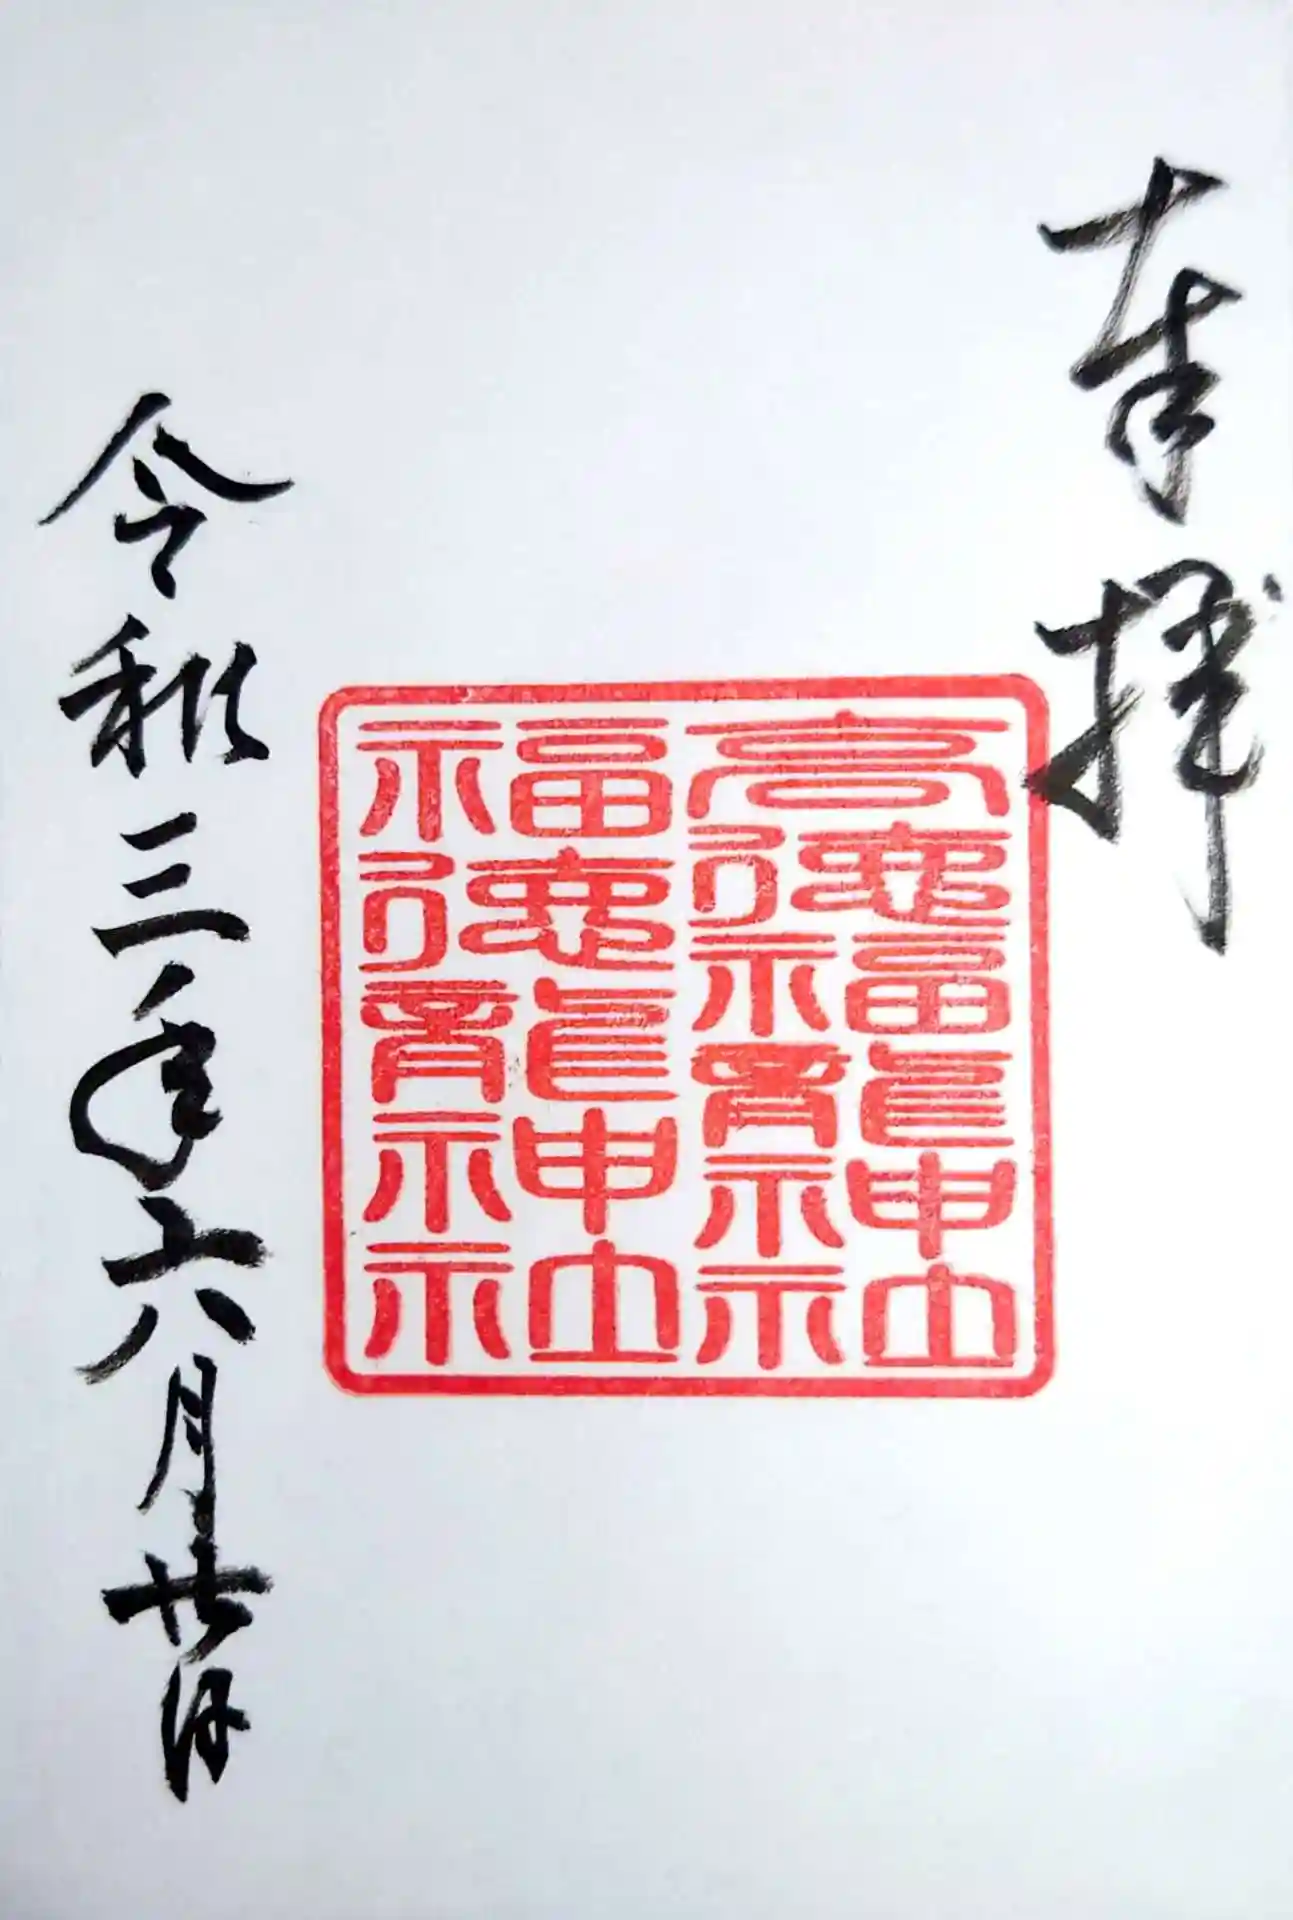 奉拝
高德福龍神社
福德龍神社
令和三年六月廿日